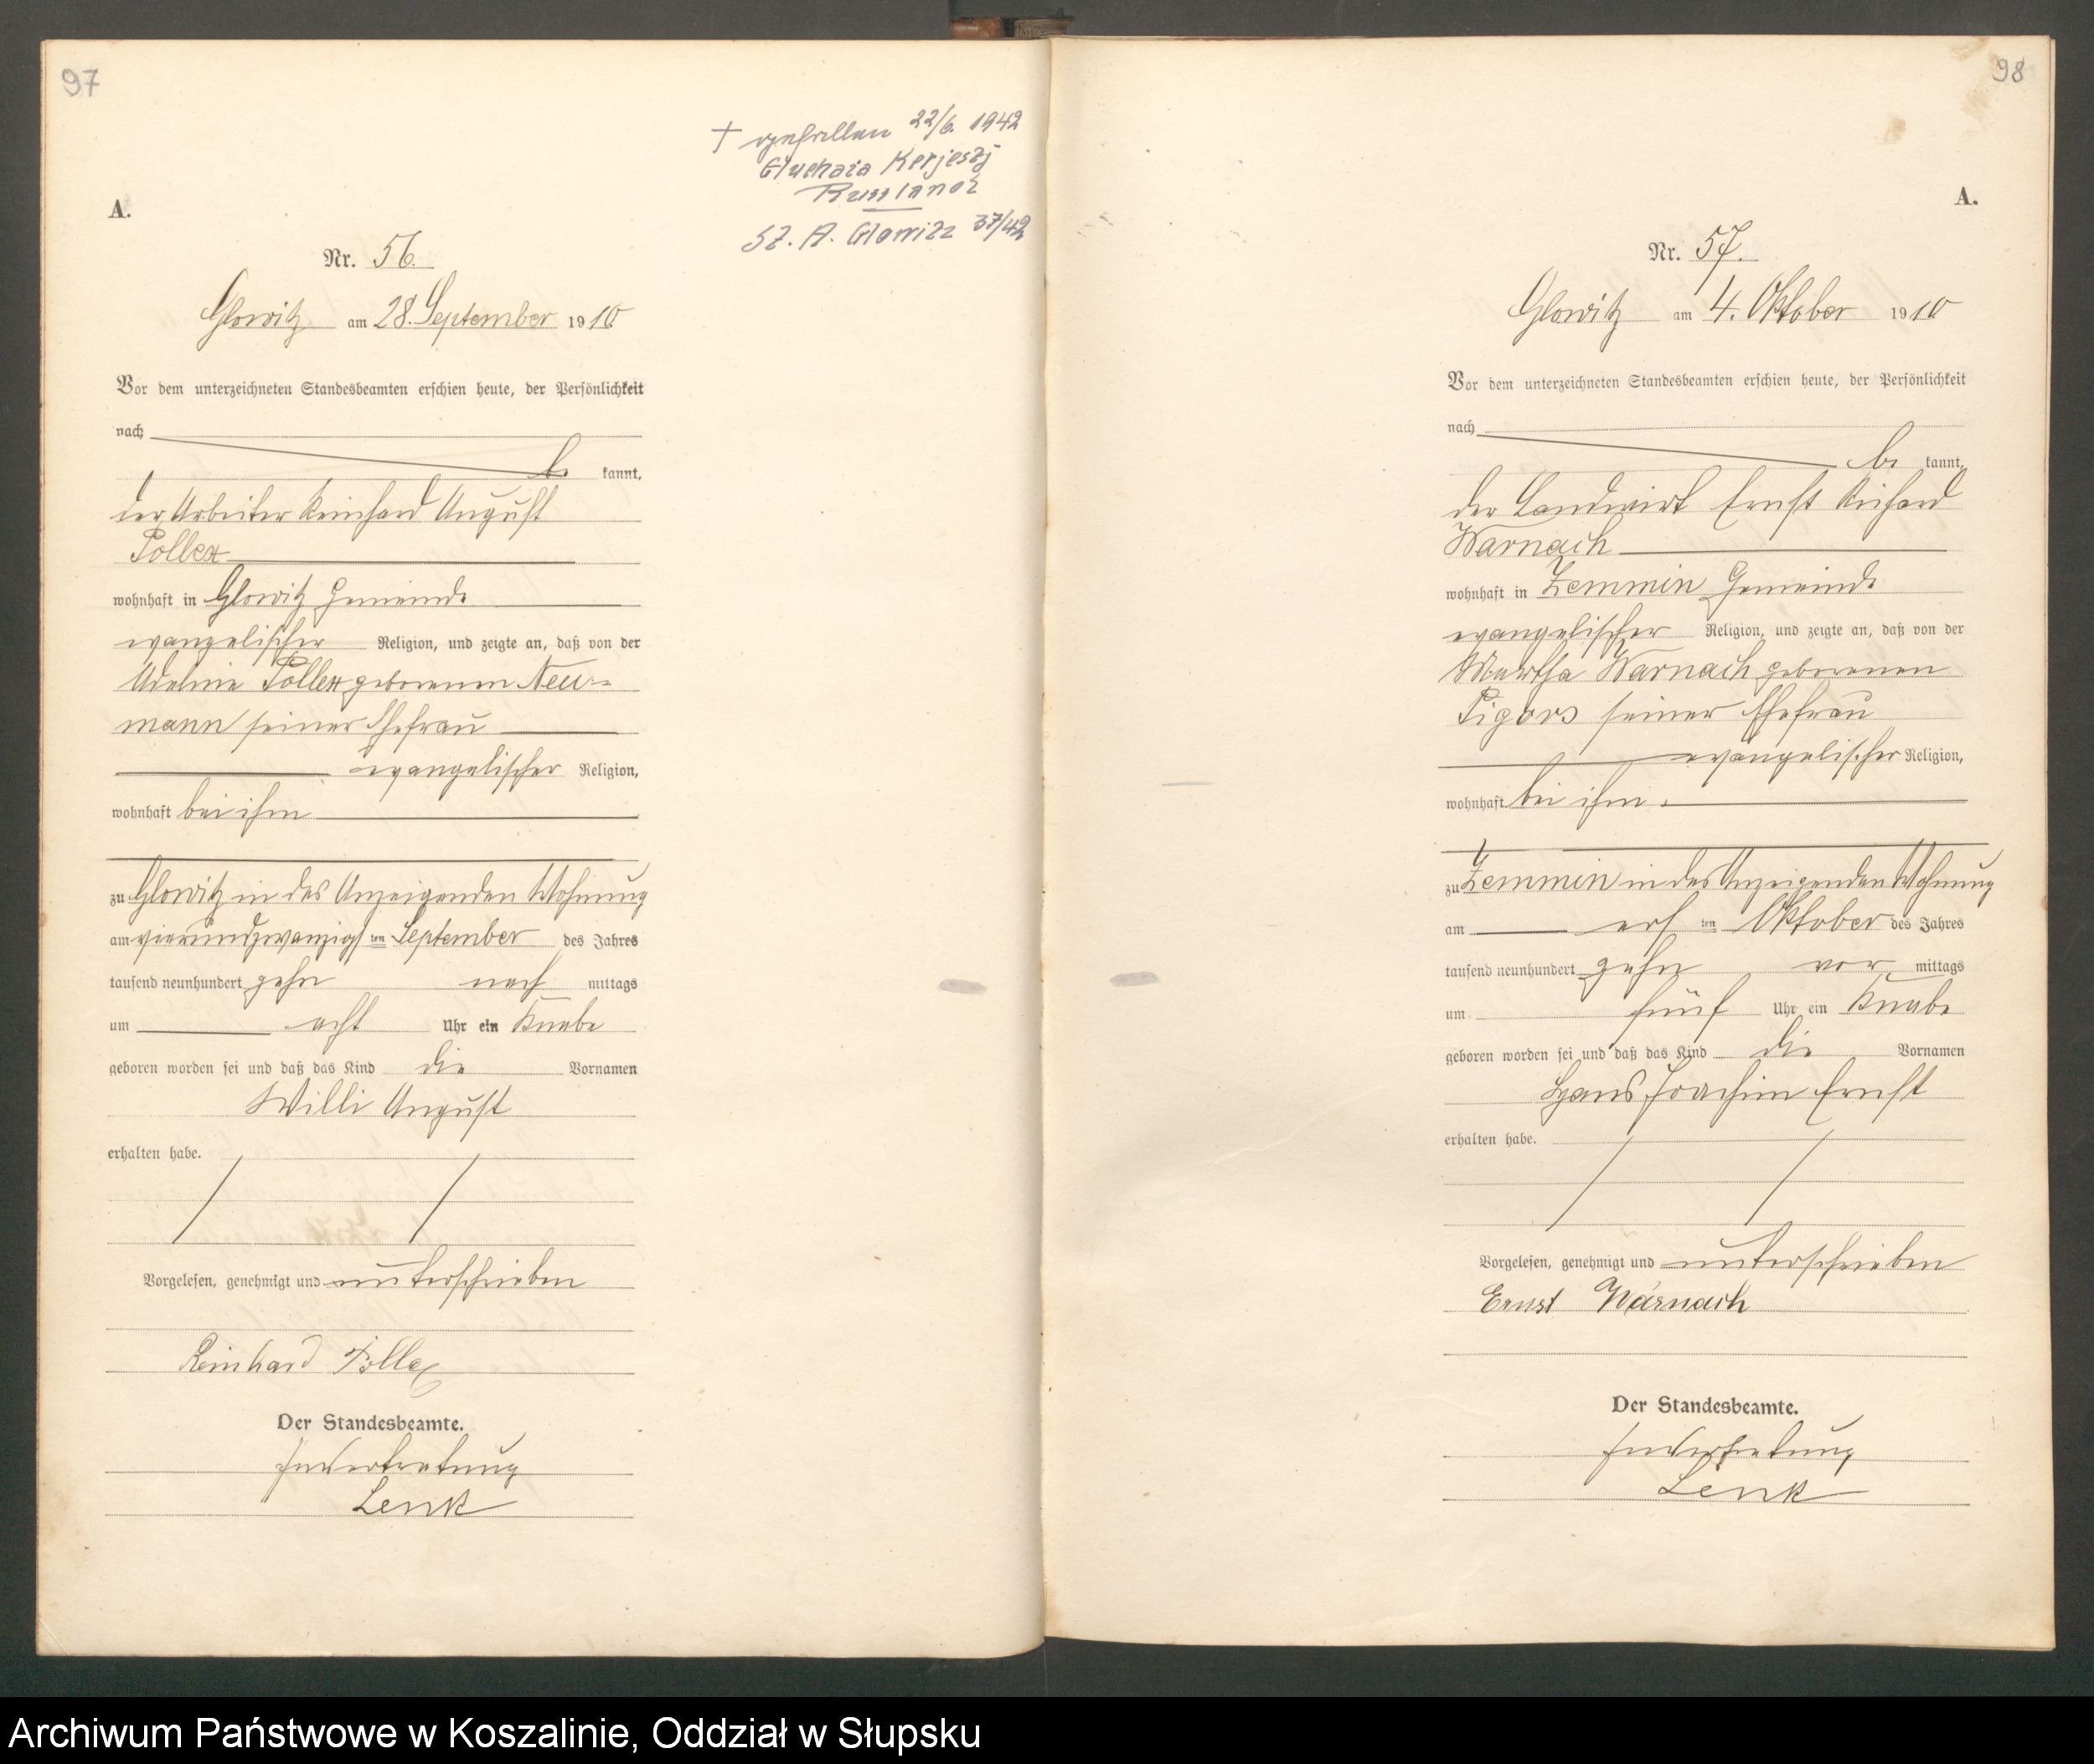 97
+ gefallen 22/6. 1942
Gluchaia Kerjeszj
Russland
St. A. Glowitz 37/42
A.
Nr. 56.
Glowitz am 28. September 1910
Vor dem unterzeichneten Standesbeamten erschien heute, der Persönlichkeit
nach
be kannt,
der Arbeiter Reinhard August
Pollex
wohnhaft in Glowitz Gemeinde
evangelischer Religion, und zeigte an, daß von der
Adeline Pollex geborenen Neu-
mann seiner Ehefrau
evangelischer Religion,
wohnhaft bei ihm
zu Glowitz in des Anzeigenden Wohnung
am vierundzwanzigs ten September des Jahres
tausend neunhundert zehn nach mittags
um acht Uhr ein Knabe
geboren worden sei und daß das Kind die Vornamen
Willi August
erhalten habe.
Vorgelesen, genehmigt und unterschrieben
Reinhard Pollex
Der Standesbeamte.
In Vertretung
Lenk
98
A.
Nr. 57.
Glowitz am 4. Oktober 1910
Vor dem unterzeichneten Standesbeamten erschien heute, der Persönlichkeit
nach
be kannt,
der Landwirt Ernst Richard
Warnach
wohnhaft in Zemmin Gemeinde
evangelischer Religion, und zeigte an, daß von der
Martha Warnach geborenen
Pigors seiner Ehefrau
evangelischer Religion,
wohnhaft bei ihm
zu Zemmin in des Anzeigenden Wohnung
am ers ten Oktober des Jahres
tausend neunhundert zehn vor mittags
um fünf Uhr ein Knabe
geboren worden sei und daß das Kind die Vornamen
Hans Joachim Ernst
erhalten habe.
Vorgelesen, genehmigt und unterschrieben
Ernst Warnach
Der Standesbeamte.
In Vertretung
Lenk
Archiwum Państwowe w Koszalinie, Oddział w Słupsku